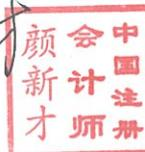 中国注册
会计师
颜新才